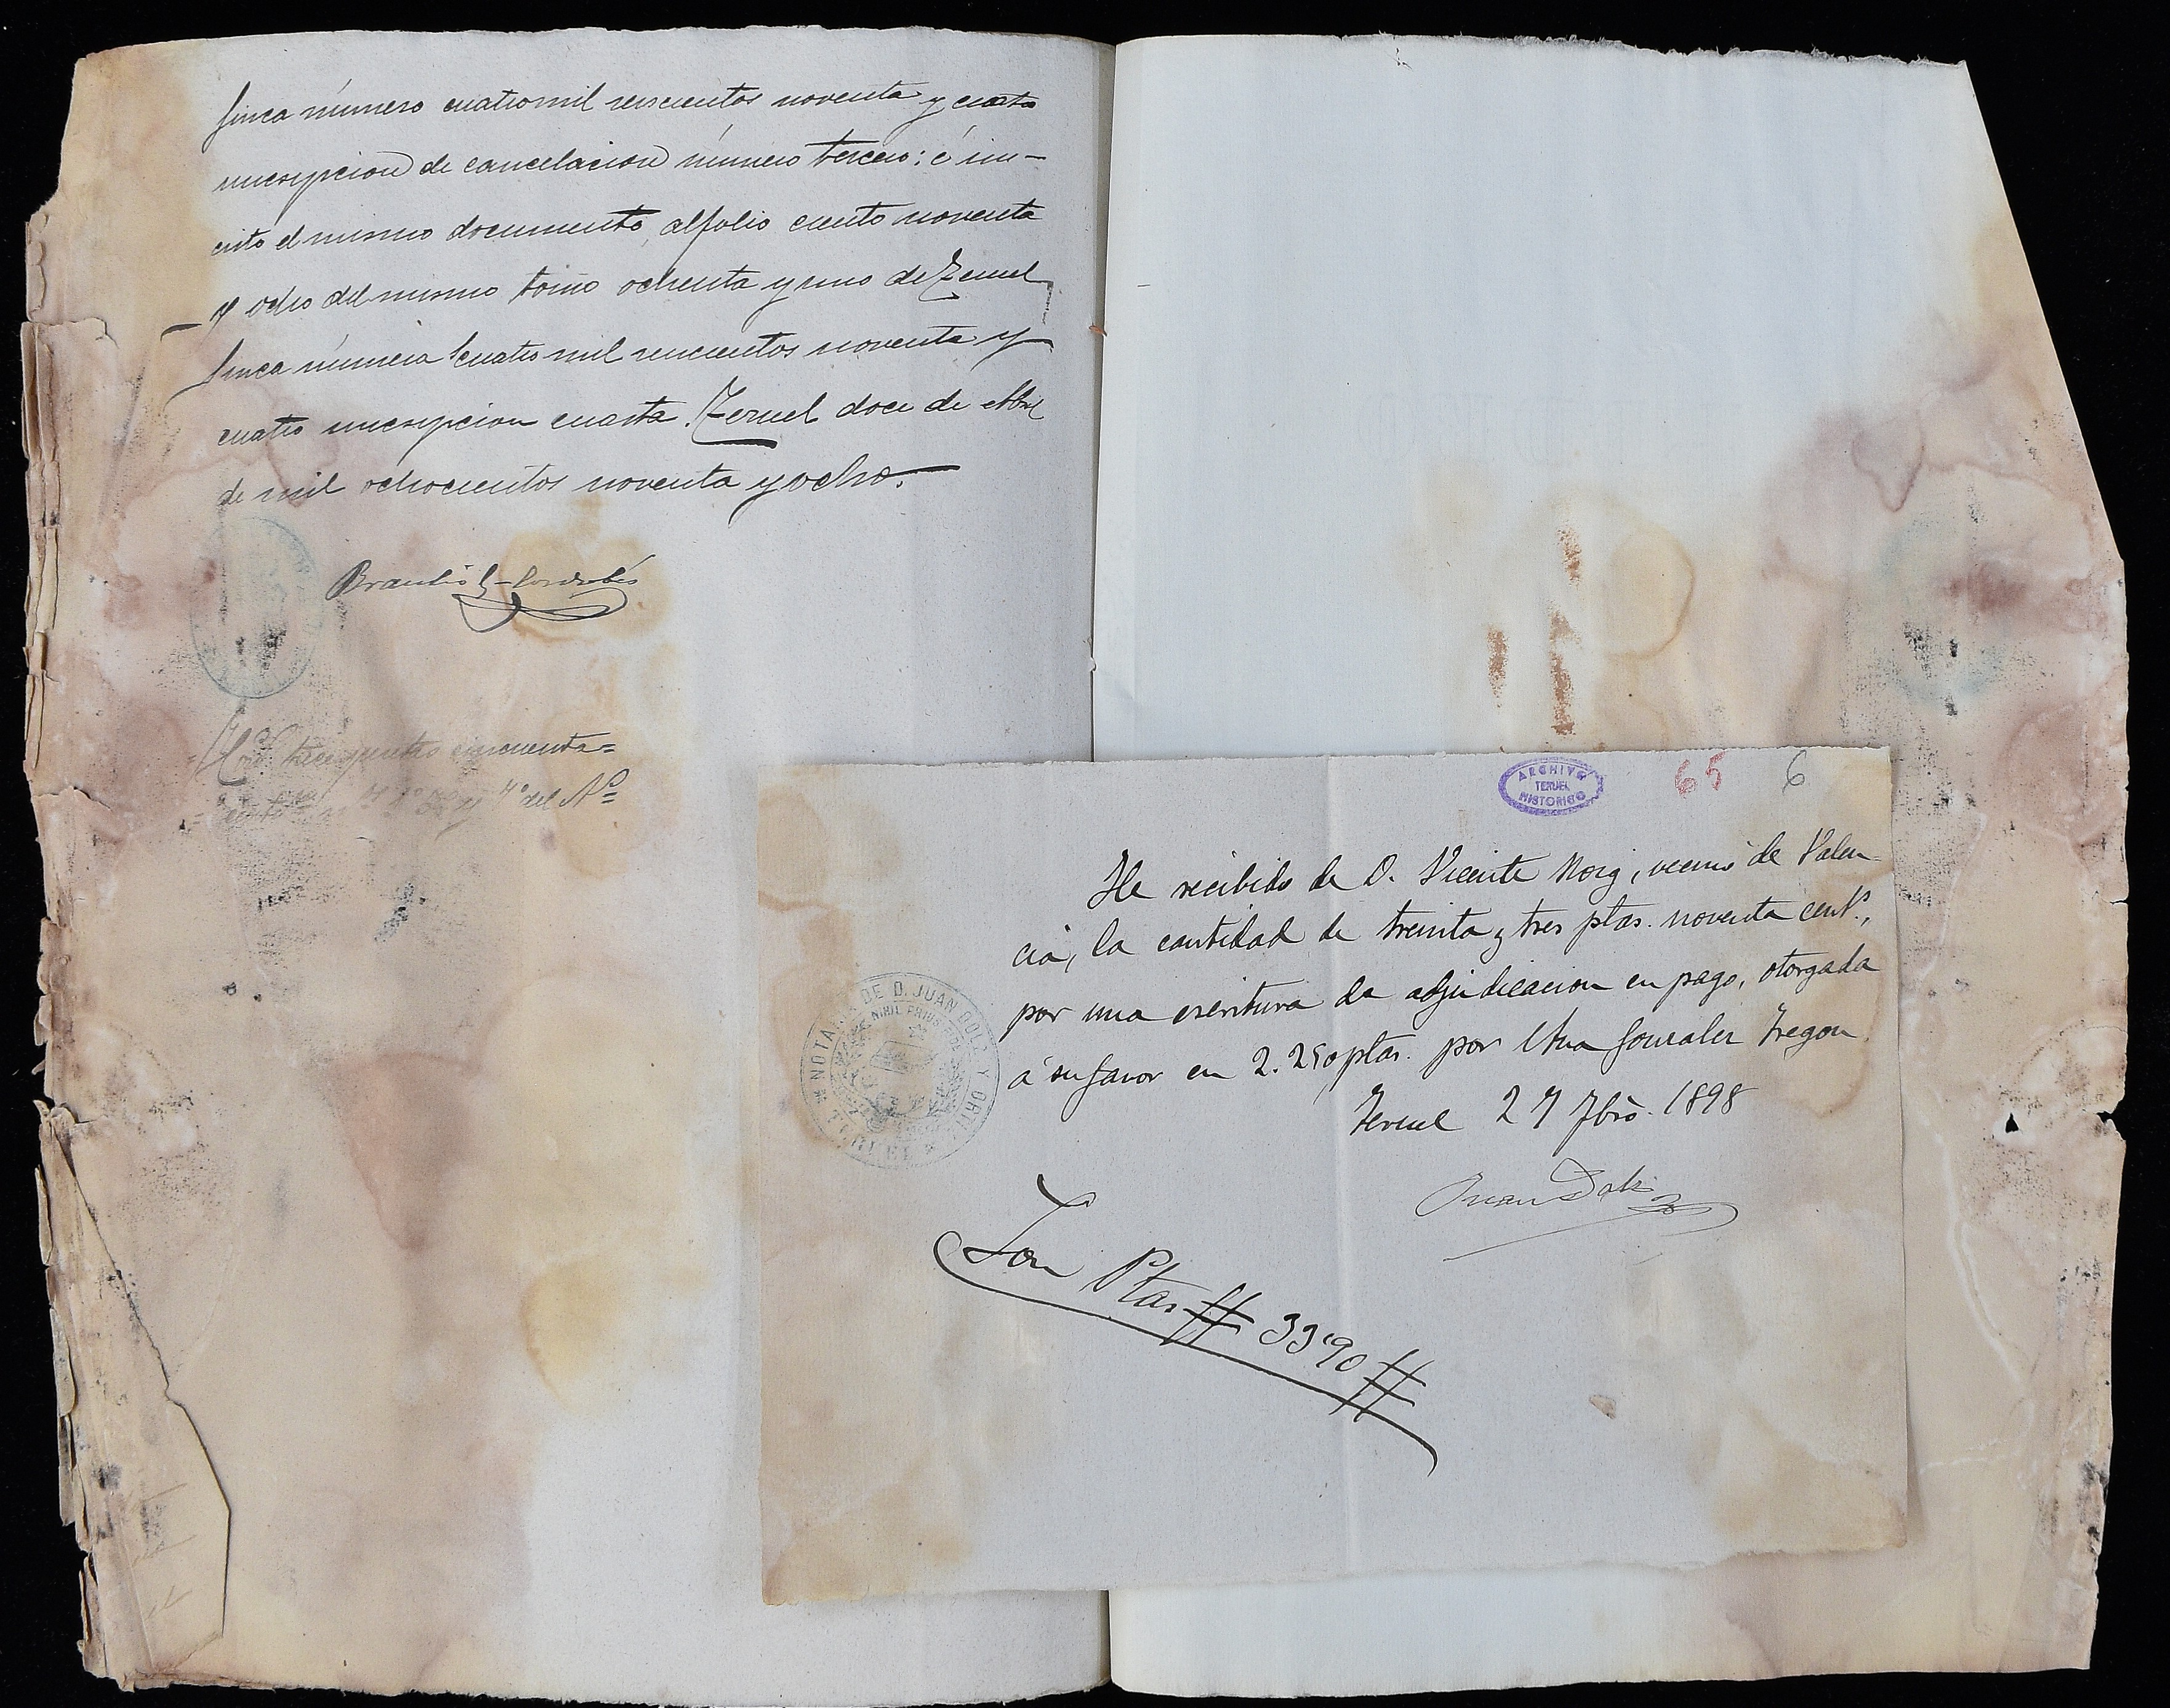 finca número cuatro mil seiscientos noventa y cuatro
inscripcion de cancelacion número tercero: é ins-
crito el mismo documento, al folio ciento noventa
y ocho del mismo tomo ochenta y uno de Teruel
finca número cuatro mil seiscientos noventa y
cuatro inscripcion cuarta. Teruel doce de Abril
de mil ochocientos noventa y ocho.
Braulio
Hon.s trece pesetas cincuenta=
y 4º del Aº=
ARCHIVO
TERUEL
HISTORICO
65 6
He recibido de D. Vicente Roig, vecino de Valen-
cia, la cantidad de treinta y tres ptas. noventa cents.,
por una escritura de adjudicacion en pago, otorgada
á su favor en 2.250 ptas. por Ana Gonzalez Fregon
Teruel 27 7bro. 1898
Juan Dolz
NOTARIA DE D. JUAN DOLZ Y ORTIZ * TERUEL *
NIHIL PRIUS FIDE
Son Ptas # 33'90 #